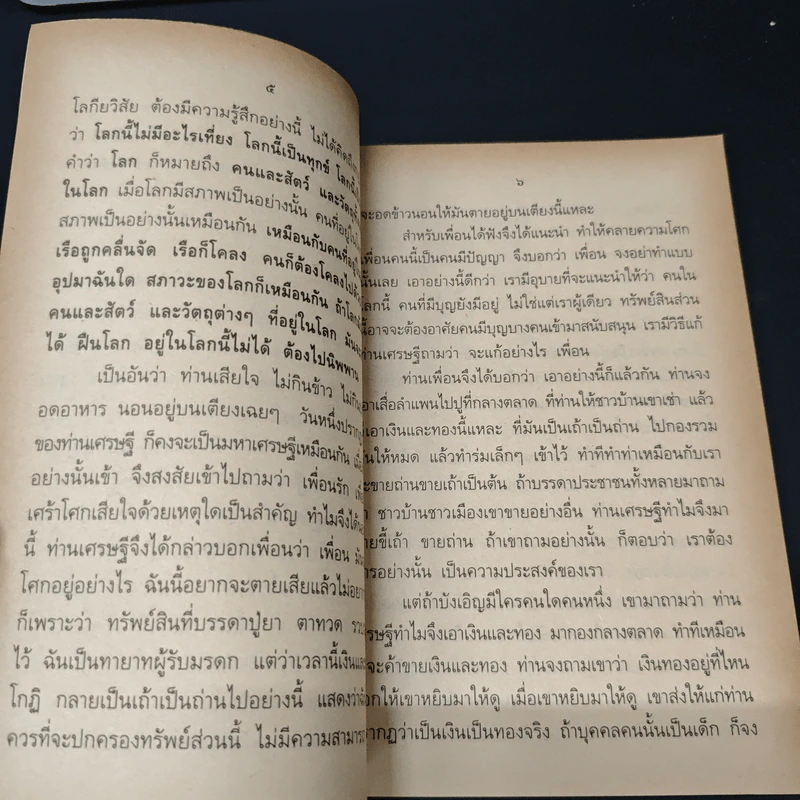 ๕
โลกียวิสัย ต้องมีความรู้สึกอย่างนี้ ไม่ได้คิด
ว่า โลกนี้ไม่มีอะไรเที่ยง โลกนี้เป็นทุกข์
คำว่า โลก ก็หมายถึง คนและสัตว์ และวัตถุ
ในโลก เมื่อโลกมีสภาพเป็นอย่างนั้น คนที่อยู่ใน
สภาพเป็นอย่างนั้นเหมือนกัน เหมือนกับคนที่
เรือถูกคลื่นจัด เรือก็โคลง คนก็ต้องโคลงไป
อุปมาฉันใด สภาวะของโลกก็เหมือนกัน ถ้า
คนและสัตว์ และวัตถุต่างๆ ที่อยู่ในโลก
ได้ ฝืนโลก อยู่ในโลกนี้ไม่ได้ ต้องไปนิพพาน
เป็นอันว่า ท่านเสียใจ ไม่กินข้าว
อดอาหาร นอนอยู่บนเตียงเฉยๆ วันหนึ่ง
ของท่านเศรษฐี ก็คงจะเป็นมหาเศรษฐีเหมือนกัน
อย่างนั้นเข้า จึงสงสัยเข้าไปถามว่า เพื่อนรัก
เศร้าโศกเสียใจด้วยเหตุใดเป็นสำคัญ ทำไมจึงได้
นี้ ท่านเศรษฐีจึงได้กล่าวบอกเพื่อนว่า เพื่อน
โศกอยู่อย่างไร ฉันนี้อยากจะตายเสียแล้วไม่อยาก
ก็เพราะว่า ทรัพย์สินที่บรรดาปู่ยา ตาทวด
ไว้ ฉันเป็นทายาทผู้รับมรดก แต่ว่าเวลานี้เงิน
โกฏิ กลายเป็นเถ้าเป็นถ่านไปอย่างนี้ แสดงว่า
ควรที่จะปกครองทรัพย์ส่วนนี้ ไม่มีความสามารถ
๖
จะอดข้าวนอนให้มันตายอยู่บนเตียงนี้แหละ
สำหรับเพื่อนได้ฟังจึงได้แนะนำ ทำให้คลายความโศก
เพื่อนคนนี้เป็นคนมีปัญญา จึงบอกว่า เพื่อน จงอย่าทำแบบ
นั้นเลย เอาอย่างนี้ดีกว่า เรามีอุบายที่จะแนะนำให้ว่า คนใน
โลกนี้ คนที่มีบุญยังมีอยู่ ไม่ใช่แต่เราผู้เดียว ทรัพย์สินส่วน
นี้อาจจะต้องอาศัยคนมีบุญบางคนเข้ามาสนับสนุน เรามีวิธีแก้
ท่านเศรษฐีถามว่า จะแก้อย่างไร เพื่อน
ท่านเพื่อนจึงได้บอกว่า เอาอย่างนี้ก็แล้วกัน ท่านจง
เอาเสื่อลำแพนไปปูที่กลางตลาด ที่ท่านให้ชาวบ้านเขาเช่า แล้ว
เอาเงินและทองนี้แหละ ที่มันเป็นเถ้าเป็นถ่าน ไปกองรวม
ให้หมด แล้วทำร่มเล็กๆ เข้าไว้ ทำทีทำท่าเหมือนกับเรา
จะขายถ่านขายเถ้าเป็นต้น ถ้าบรรดาประชาชนทั้งหลายมาถาม
ชาวบ้านชาวเมืองเขาขายอย่างอื่น ท่านเศรษฐีทำไมจึงมา
ขายขี้เถ้า ขายถ่าน ถ้าเขาถามอย่างนั้น ก็ตอบว่า เราต้อง
การอย่างนั้น เป็นความประสงค์ของเรา
แต่ถ้าบังเอิญมีใครคนใดคนหนึ่ง เขามาถามว่า ท่าน
เศรษฐีทำไมจึงเอาเงินและทอง มากองกลางตลาด ทำทีเหมือน
จะค้าขายเงินและทอง ท่านจงถามเขาว่า เงินทองอยู่ที่ไหน
บอกให้เขาหยิบมาให้ดู เมื่อเขาหยิบมาให้ดู เขาส่งให้แก่ท่าน
ปรากฏว่าเป็นเงินเป็นทองจริง ถ้าบุคคลคนนั้นเป็นเด็ก ก็จง